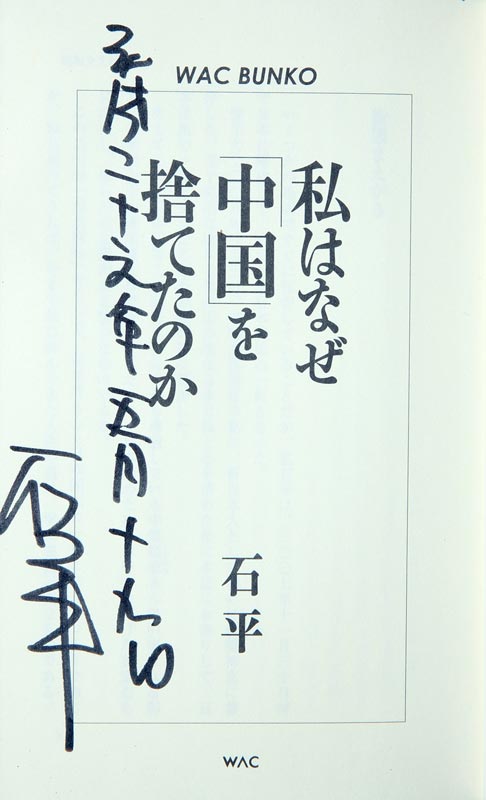 WAC BUNKO
私はなぜ
「中国」を
捨てたのか
石平
平成二十六年五月十九日
石平
WAC